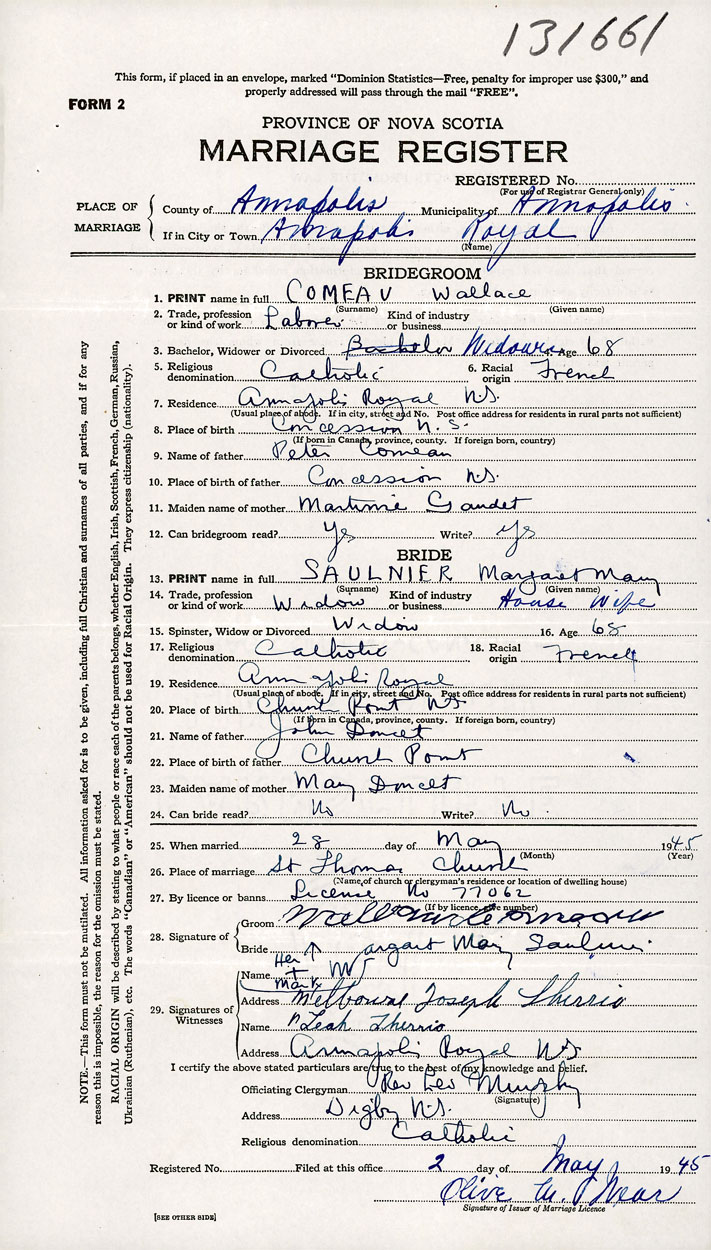 131661
This form, if placed in an envelope, marked "Dominion Statistics—Free, penalty for improper use $300," and
properly addressed will pass through the mail "FREE".
FORM 2
PROVINCE OF NOVA SCOTIA
MARRIAGE REGISTER
REGISTERED No.
(For use of Registrar General only)
PLACE OF MARRIAGE
County of Annapolis Municipality of Annapolis
If in City or Town Annapolis Royal
(Name)
BRIDEGROOM
1. PRINT name in full COMEAU Wallace
(Surname) (Given name)
2. Trade, profession or kind of work Laborer Kind of industry or business
3. Bachelor, Widower or Divorced Bachelor Widower Age 68
5. Religious denomination Catholic 6. Racial origin French
7. Residence Annapolis Royal N.S.
(Usual place of abode. If in city, street and No. Post office address for residents in rural parts not sufficient)
8. Place of birth Concession N. S.
(If born in Canada, province, county. If foreign born, country)
9. Name of father Peter Comeau
10. Place of birth of father Concession N.S.
11. Maiden name of mother Gaudet
12. Can bridegroom read? Ys Write? Ys
BRIDE
13. PRINT name in full SAULNIER Margaret Mary
(Surname) (Given name)
14. Trade, profession or kind of work Widow Kind of industry or business House Wife
15. Spinster, Widow or Divorced Widow 16. Age 68
17. Religious denomination Catholic 18. Racial origin French
19. Residence Annapolis Royal
(Usual place of abode. If in city, street and No. Post office address for residents in rural parts not sufficient)
20. Place of birth Church Point N.S.
(If born in Canada, province, county. If foreign born, country)
21. Name of father John Doucet
22. Place of birth of father Church Point
23. Maiden name of mother Mary Doucet
24. Can bride read? No Write? No
25. When married 28 day of May 1945
(Month) (Year)
26. Place of marriage St Thomas Church
(Name of church or clergyman's residence or location of dwelling house)
27. By licence or banns License No 77062
(If by licence, give number)
28. Signature of
Groom
Bride Margaret Mary Saulnier
Her + Mark
29. Signatures of Witnesses
Name
Address Melbourne Joseph Therrio
Name Leah Therrio
Address Annapolis Royal N.S.
I certify the above stated particulars are true to the best of my knowledge and belief.
Officiating Clergyman Rev Leo Murphy
(Signature)
Address Digby N.S.
Religious denomination Catholic
Registered No. Filed at this office 2 day of May 1945
Olive M.
Signature of Issuer of Marriage Licence
[SEE OTHER SIDE]
NOTE.—This form must not be mutilated. All information asked for is to be given, including full Christian and surnames of all parties, and if for any
reason this is impossible, the reason for the omission must be stated.
RACIAL ORIGIN will be described by stating to what people or race each of the parents belongs, whether English, Irish, Scottish, French, German, Russian,
Ukrainian (Ruthenian), etc. The words "Canadian" or "American" should not be used for Racial Origin. They express citizenship (nationality).